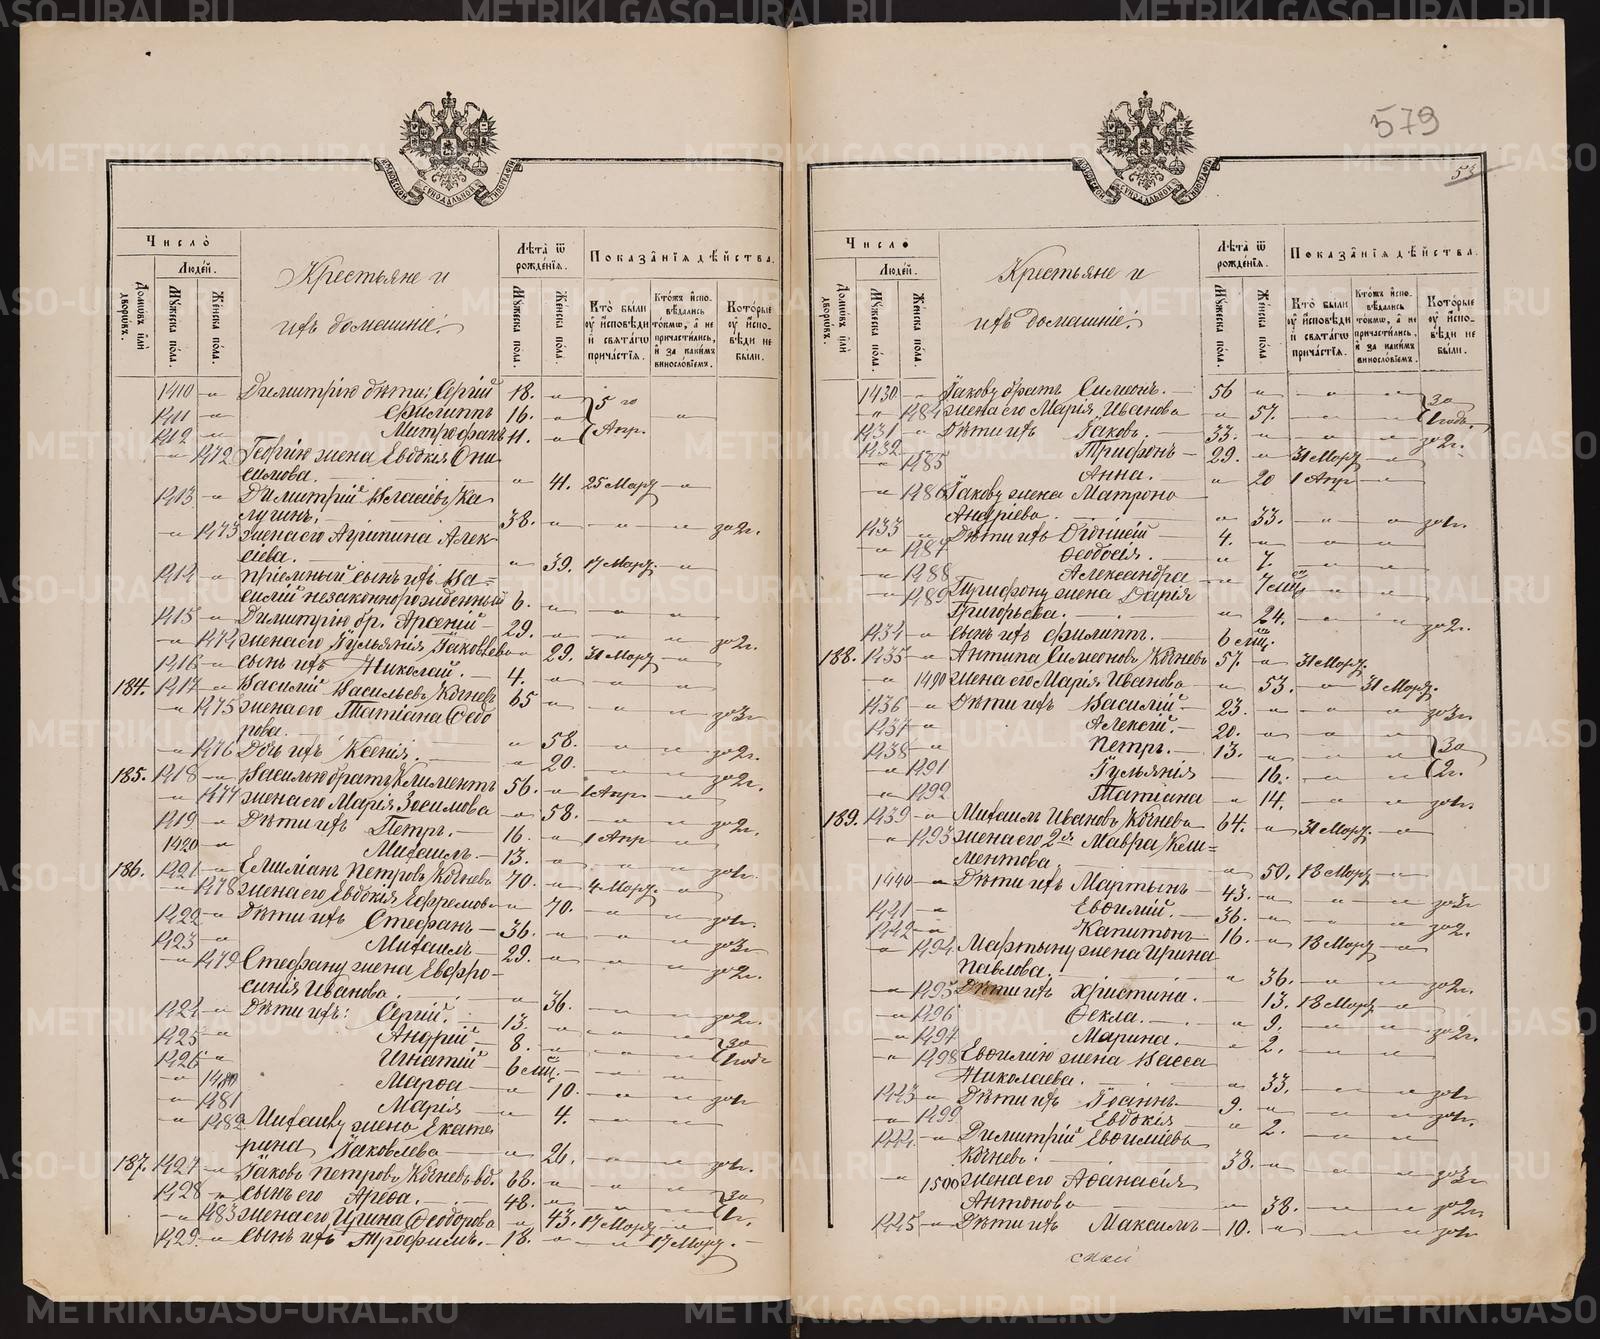 579
53
Число
Людей.
Домовъ или дворовъ.
Мужеска пола.
Женска пола.
Крестьяне и
ихъ домашніе:
Лѣта ѿ рожденія.
Мужеска пола.
Женска пола.
Показанія дѣйства.
Кто были у исповѣди и святаго причастія.
Ктожъ исповѣдались токмо, а не причастились, и за какимъ винословіемъ.
Которые у исповѣди не были.
1410 Димитрію дѣти: Сергій 18.
1411 Филиппъ 16. 5 го
1412 Митрофанъ 11. Апр.
1472 Георгію жена Евдокія Они
симова. 41. 25 Мар.
1413 Димитрій Власіевъ Ка
лугинъ. 38. за 2 г.
1473 жена его Агрипина Алек
сіева. 39. 17 Мар.
1414 пріемный сынъ ихъ Ва=
силій незаконнорожденный 6.
1415 Димитрію бр. Арсеній 29. за 2 г.
1474 жена его Іульянія Іаковлева 29. 31 Мар.
1416 сынъ ихъ Николай. 4.
184. 1417 Василій Васильевъ Кочневъ 65 за 3 г.
1475 жена его Татіана Ѳедо
рова. 58.
1476 Дочь ихъ Ксенія. 20. за 2 г.
185. 1418 Василью братъ Климентъ 56. 1 Апр. за 2 г.
1477 жена его Марія Зосимова 58.
1419 Дѣти ихъ Петръ. 16. 1 Апр. за 2 г.
1420 Михаилъ. 13.
186. 1421 Емиліанъ Петровъ Кочневъ 70. 4 Мар.
1478 жена его Евдокія Ефремова 70.
1422 Дѣти ихъ Стефанъ 36.
1423 Михаилъ 29. за 3 г.
1479 Стефану жена Евфро-
синія Иванова. 36. за 2 г.
1424 Дѣти ихъ: Сергій. 13. за 2 г.
1425 Андрій 8. за
1426 Игнатій 6 мц. 1 годъ
1480 Марѳа 10.
1481 Марія 4.
1482 Михаилу жена Екате
рина Іаковлева 26.
187. 1427 Іаковъ Петровъ Кочневъ вд. 68.
1428 сынъ его Арефа. 48. за
1483 жена его Ирина Ѳеодорова 43. 17 Мар. 1 г.
1429 сынъ ихъ Трофимъ. 18. 17 Мар.
Число
Людей.
Домовъ или дворовъ.
Мужеска пола.
Женска пола.
Крестьяне и
ихъ домашніе:
Лѣта ѿ рожденія.
Мужеска пола.
Женска пола.
Показанія дѣйства.
Кто были у исповѣди и святаго причастія.
Ктожъ исповѣдались токмо, а не причастились, и за какимъ винословіемъ.
Которые у исповѣди не были.
1430 Іакову братъ Симеонъ. 56 за
1484 жена его Марія Иванова 57. 1 годъ.
1431 Дѣти ихъ Іаковъ. 33. за 2 г.
1432 Трифонъ 29. 31 Мар.
1485 Анна. 20 1 Апр.
1486 Іакову жена Матрона
Андріева. 33.
1433 Дѣти ихъ
1487 Ѳеодосія. 7.
1488 Александра 7 мц.
1489 Трифону жена Дарія
Григорьева. 24.
1434 сынъ ихъ Филиппъ. 6 мц. за 2 г.
188. 1435 Антипа Симеоновъ Кочневъ 57. 31 Мар.
1490 жена его Марія Иванова 53. 31 Мар.
1436 Дѣти ихъ Василій 23. за 3 г.
1437 Алексій. 20.
1438 Петръ. 13. за
1491 Іульянія 16. 2 г.
1492 Татіана 14.
189. 1439 Михаилъ Ивановъ Кочневъ 64. 31 Мар.
1493 жена его 2я Мавра Кли=
ментова. 50. 18 Мар.
1440 Дѣти ихъ Мартынъ 43. за 3 г.
1441 Евѳимій. 36. за 2 г.
1442 Капитонъ 16. 18 Мар.
1494 Мартыну жена Ирина
Павлова. 36. за 2 г.
1495 Дѣти ихъ Христина. 13. 18 Мар.
1496 Ѳекла. 9. за 2 г.
1497 Марина. 2.
1498 Евѳимію жена Васса
Николаева. 33.
1443 Дѣти ихъ Іоаннъ 9.
1499 Евдокія 2.
1444 Димитрій Евѳиміевъ
Кочневъ. 38. за 3 г.
1500 жена его Аѳанасія
Антонова 38. за 2 г.
1445 Дѣти ихъ Максимъ 10.